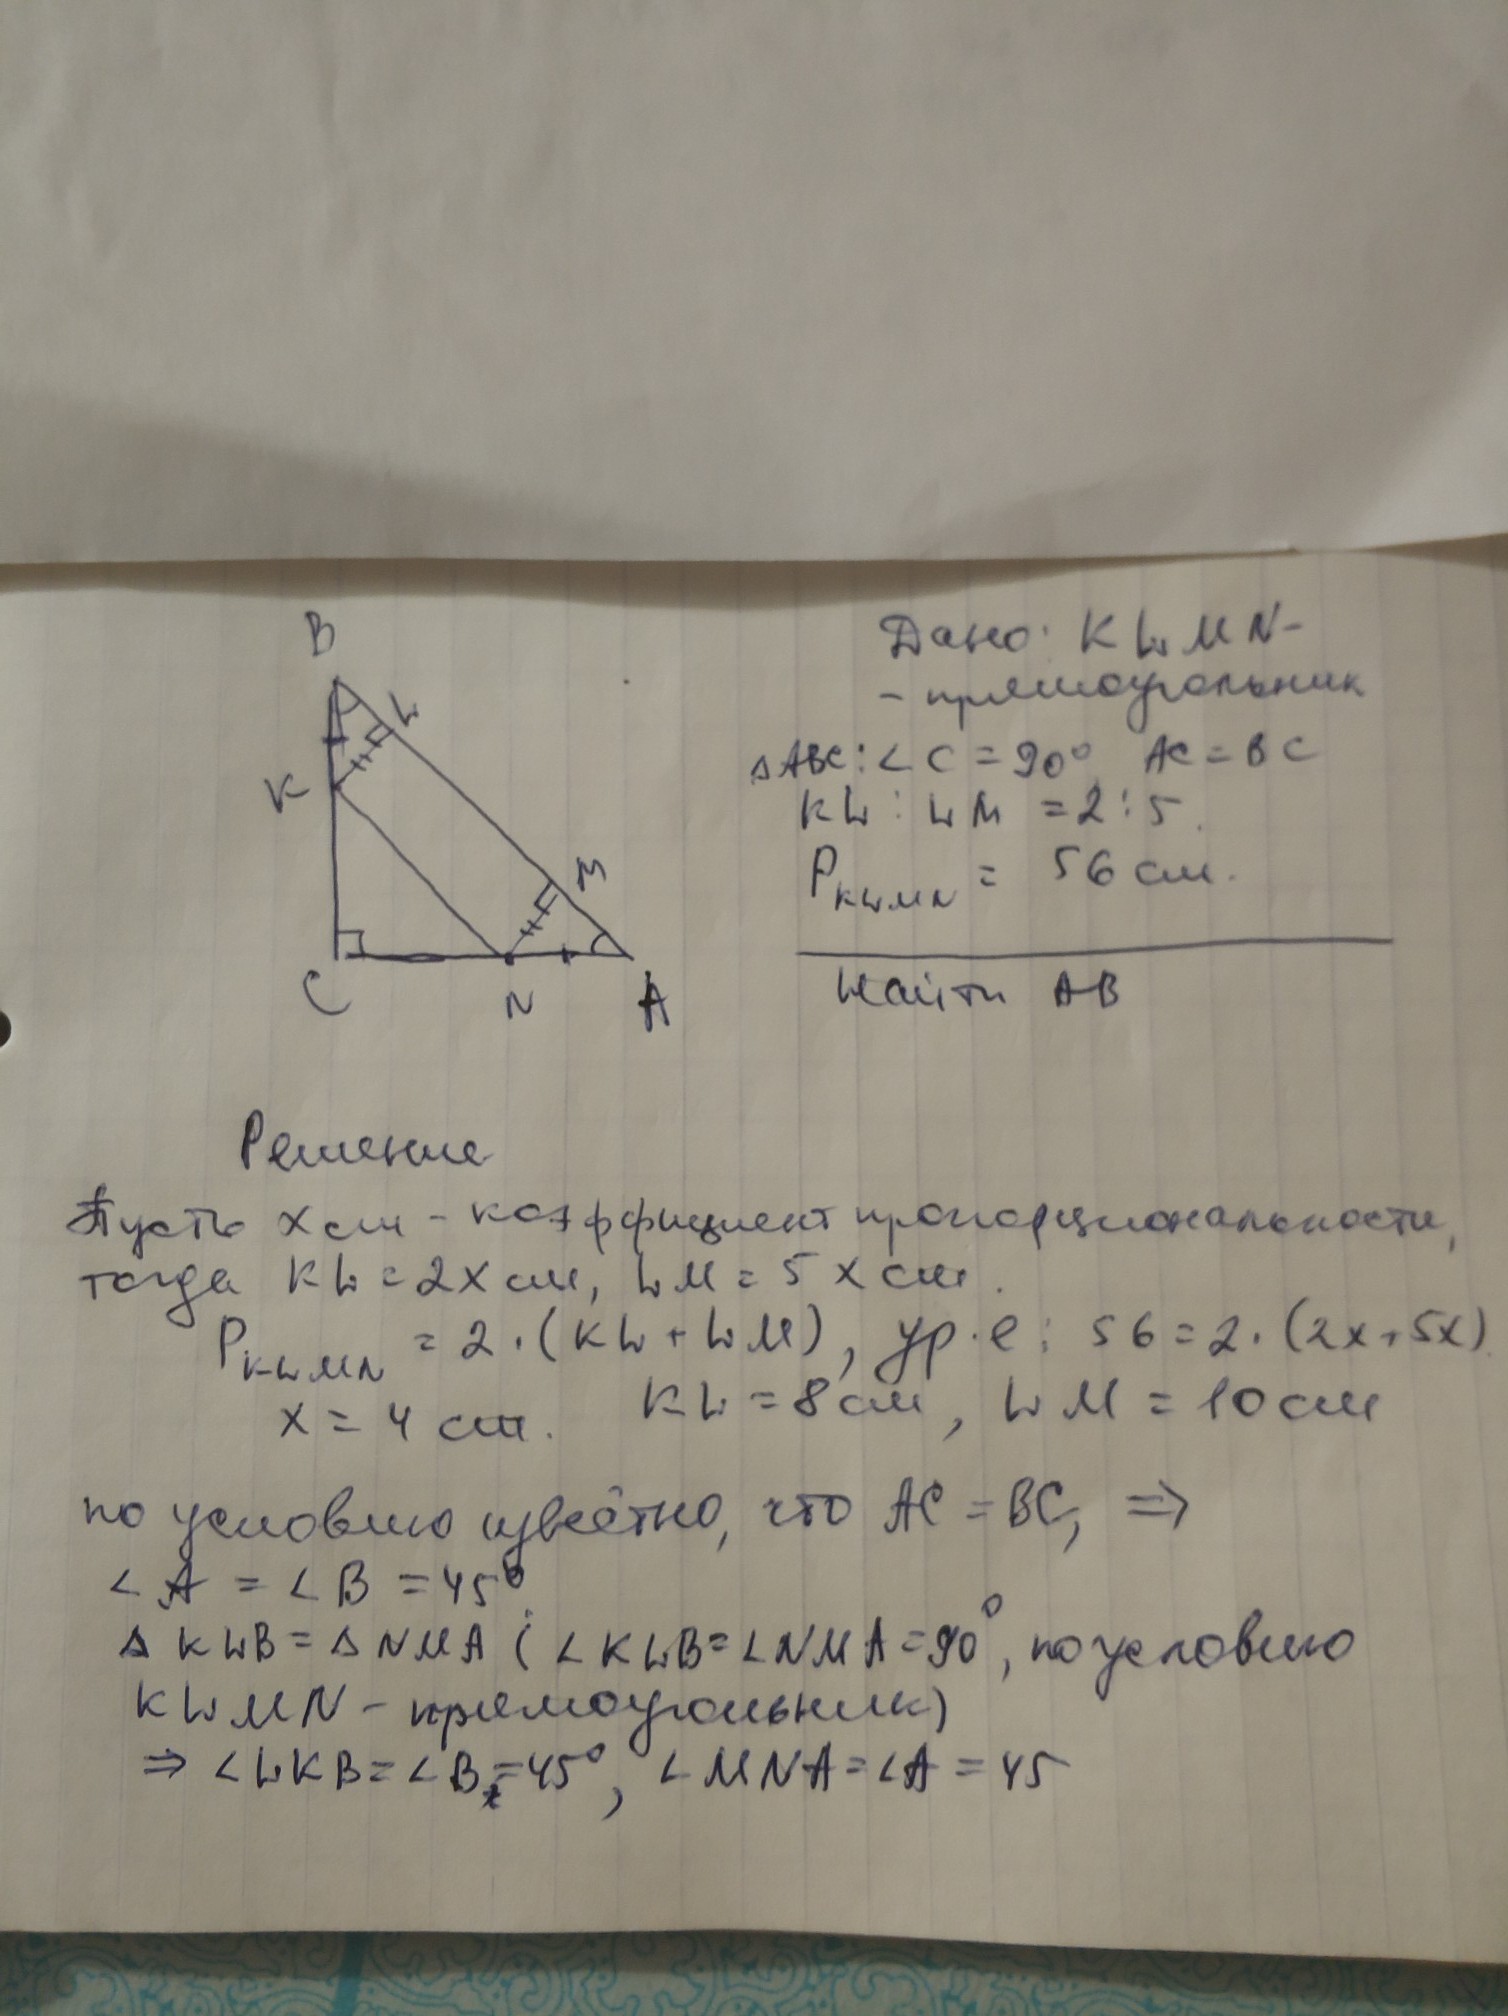 B
L
K
M
C
N
A
Дано: KLMN-
- прямоугольник
△ABC: ∠C = 90° AC = BC
KL : LM = 2 : 5.
P_KLMN = 56 см.
Найти AB
Решение
Пусть x см - коэффициент пропорциональности,
тогда KL = 2x см, LM = 5 x см.
P_KLMN = 2 · (KL + LM), ур-е: 56 = 2 · (2x + 5x)
x = 4 см. KL = 8 см, LM = 10 см
по условию известно, что AC = BC, ⇒
∠A = ∠B = 45°
△KLB = △NMA (∠KLB = ∠NMA = 90°, по условию
KLMN - прямоугольник)
⇒ ∠LKB = ∠B = 45°, ∠MNA = ∠A = 45